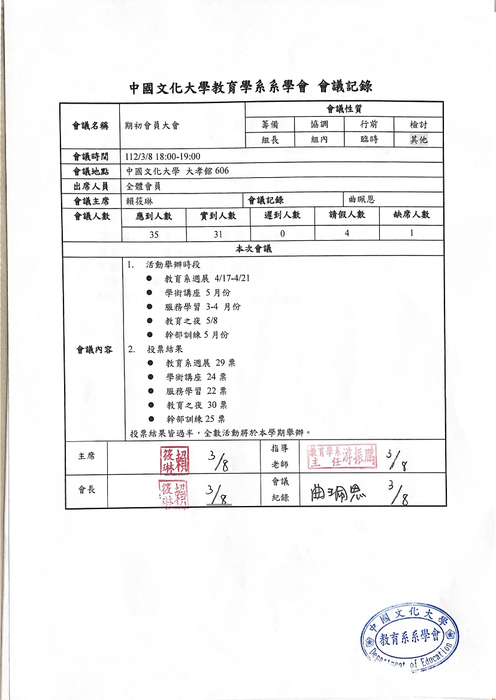 中國文化大學教育學系系學會 會議記錄
會議名稱 期初會員大會 會議性質
籌備 協調 行前 檢討
組長 組內 臨時 其他
會議時間 112/3/8 18:00-19:00
會議地點 中國文化大學 大孝館 606
出席人員 全體會員
會議主席 賴筱琳 會議記錄 曲珮恩
會議人數 應到人數 實到人數 遲到人數 請假人數 缺席人數
35 31 0 4 1
本次會議
會議內容
1. 活動舉辦時段
● 教育系週展 4/17-4/21
● 學術講座 5 月份
● 服務學習 3-4 月份
● 教育之夜 5/8
● 幹部訓練 5 月份
2. 投票結果
● 教育系週展 29 票
● 學術講座 24 票
● 服務學習 22 票
● 教育之夜 30 票
● 幹部訓練 25 票
投票結果皆過半，全數活動將於本學期舉辦。
主席 賴筱琳 3/8 指導老師 教育學系主任游振鵬 3/8
會長 賴筱琳 3/8 會議紀錄 曲珮恩 3/8
中國文化大學
教育系系學會
Department of Education